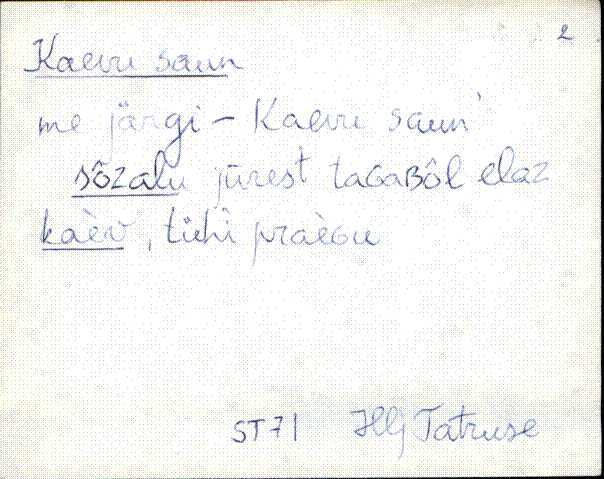 2
Kaevu saun
me järgi – Kaevu saun'
sôzalu jūrest taGaBôl elaz
kaèv, tühi praèGu
ST 71 Hlj Tatruse